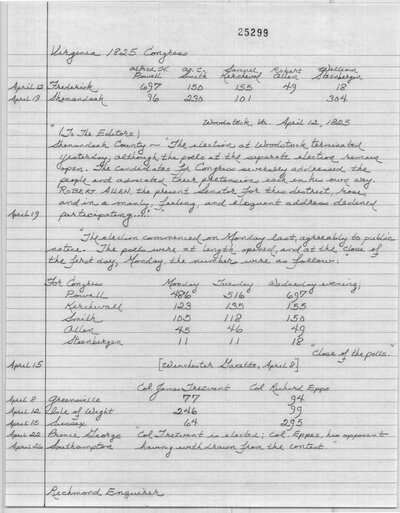 25299
Virginia 1825 Congress
Alfred H. Powell   A. C. Smith   Samuel Kercheval   Robert Allen   William Steenbergen
April 12 Frederick 697 150 155 49 18
April 19 Shenandoah 96 230 101 304
Woodstock, Va. April 12, 1825
"(To The Editors)
Shenandoah County — 'The election at Woodstock terminated
yesterday, although the polls at the separate election remain
open. The candidates for Congress severally addressed the
people and advocated their pretensions each in his own way.
ROBERT ALLEN, the present Senator for this district, rose,
and in a manly, feeling, and eloquent address declined
April 19 participating...'"
"The election commenced on Monday last, agreeably to public
notice. The polls were at length opened, and at the close of
the first day, Monday the number were as follows:"
For Congress Monday Tuesday Wednesday evening,
Powell 486 516 697
Kerchwall 123 135 155
Smith 105 118 150
Allen 45 46 49
Steenbergen 11 11 18
"Close of the polls."
April 15 [Winchester Gazette, April 8]
Col. James Trezvant Col. Richard Epps
April 8 Greensville 77 94
April 12 Isle of Wight 246 99
April 15 Sussex 64 295
April 22 Prince George "Col. Trezvant is elected; Col. Eppes, his opponent
April 26 Southampton having withdrawn from the contest."
Richmond Enquirer